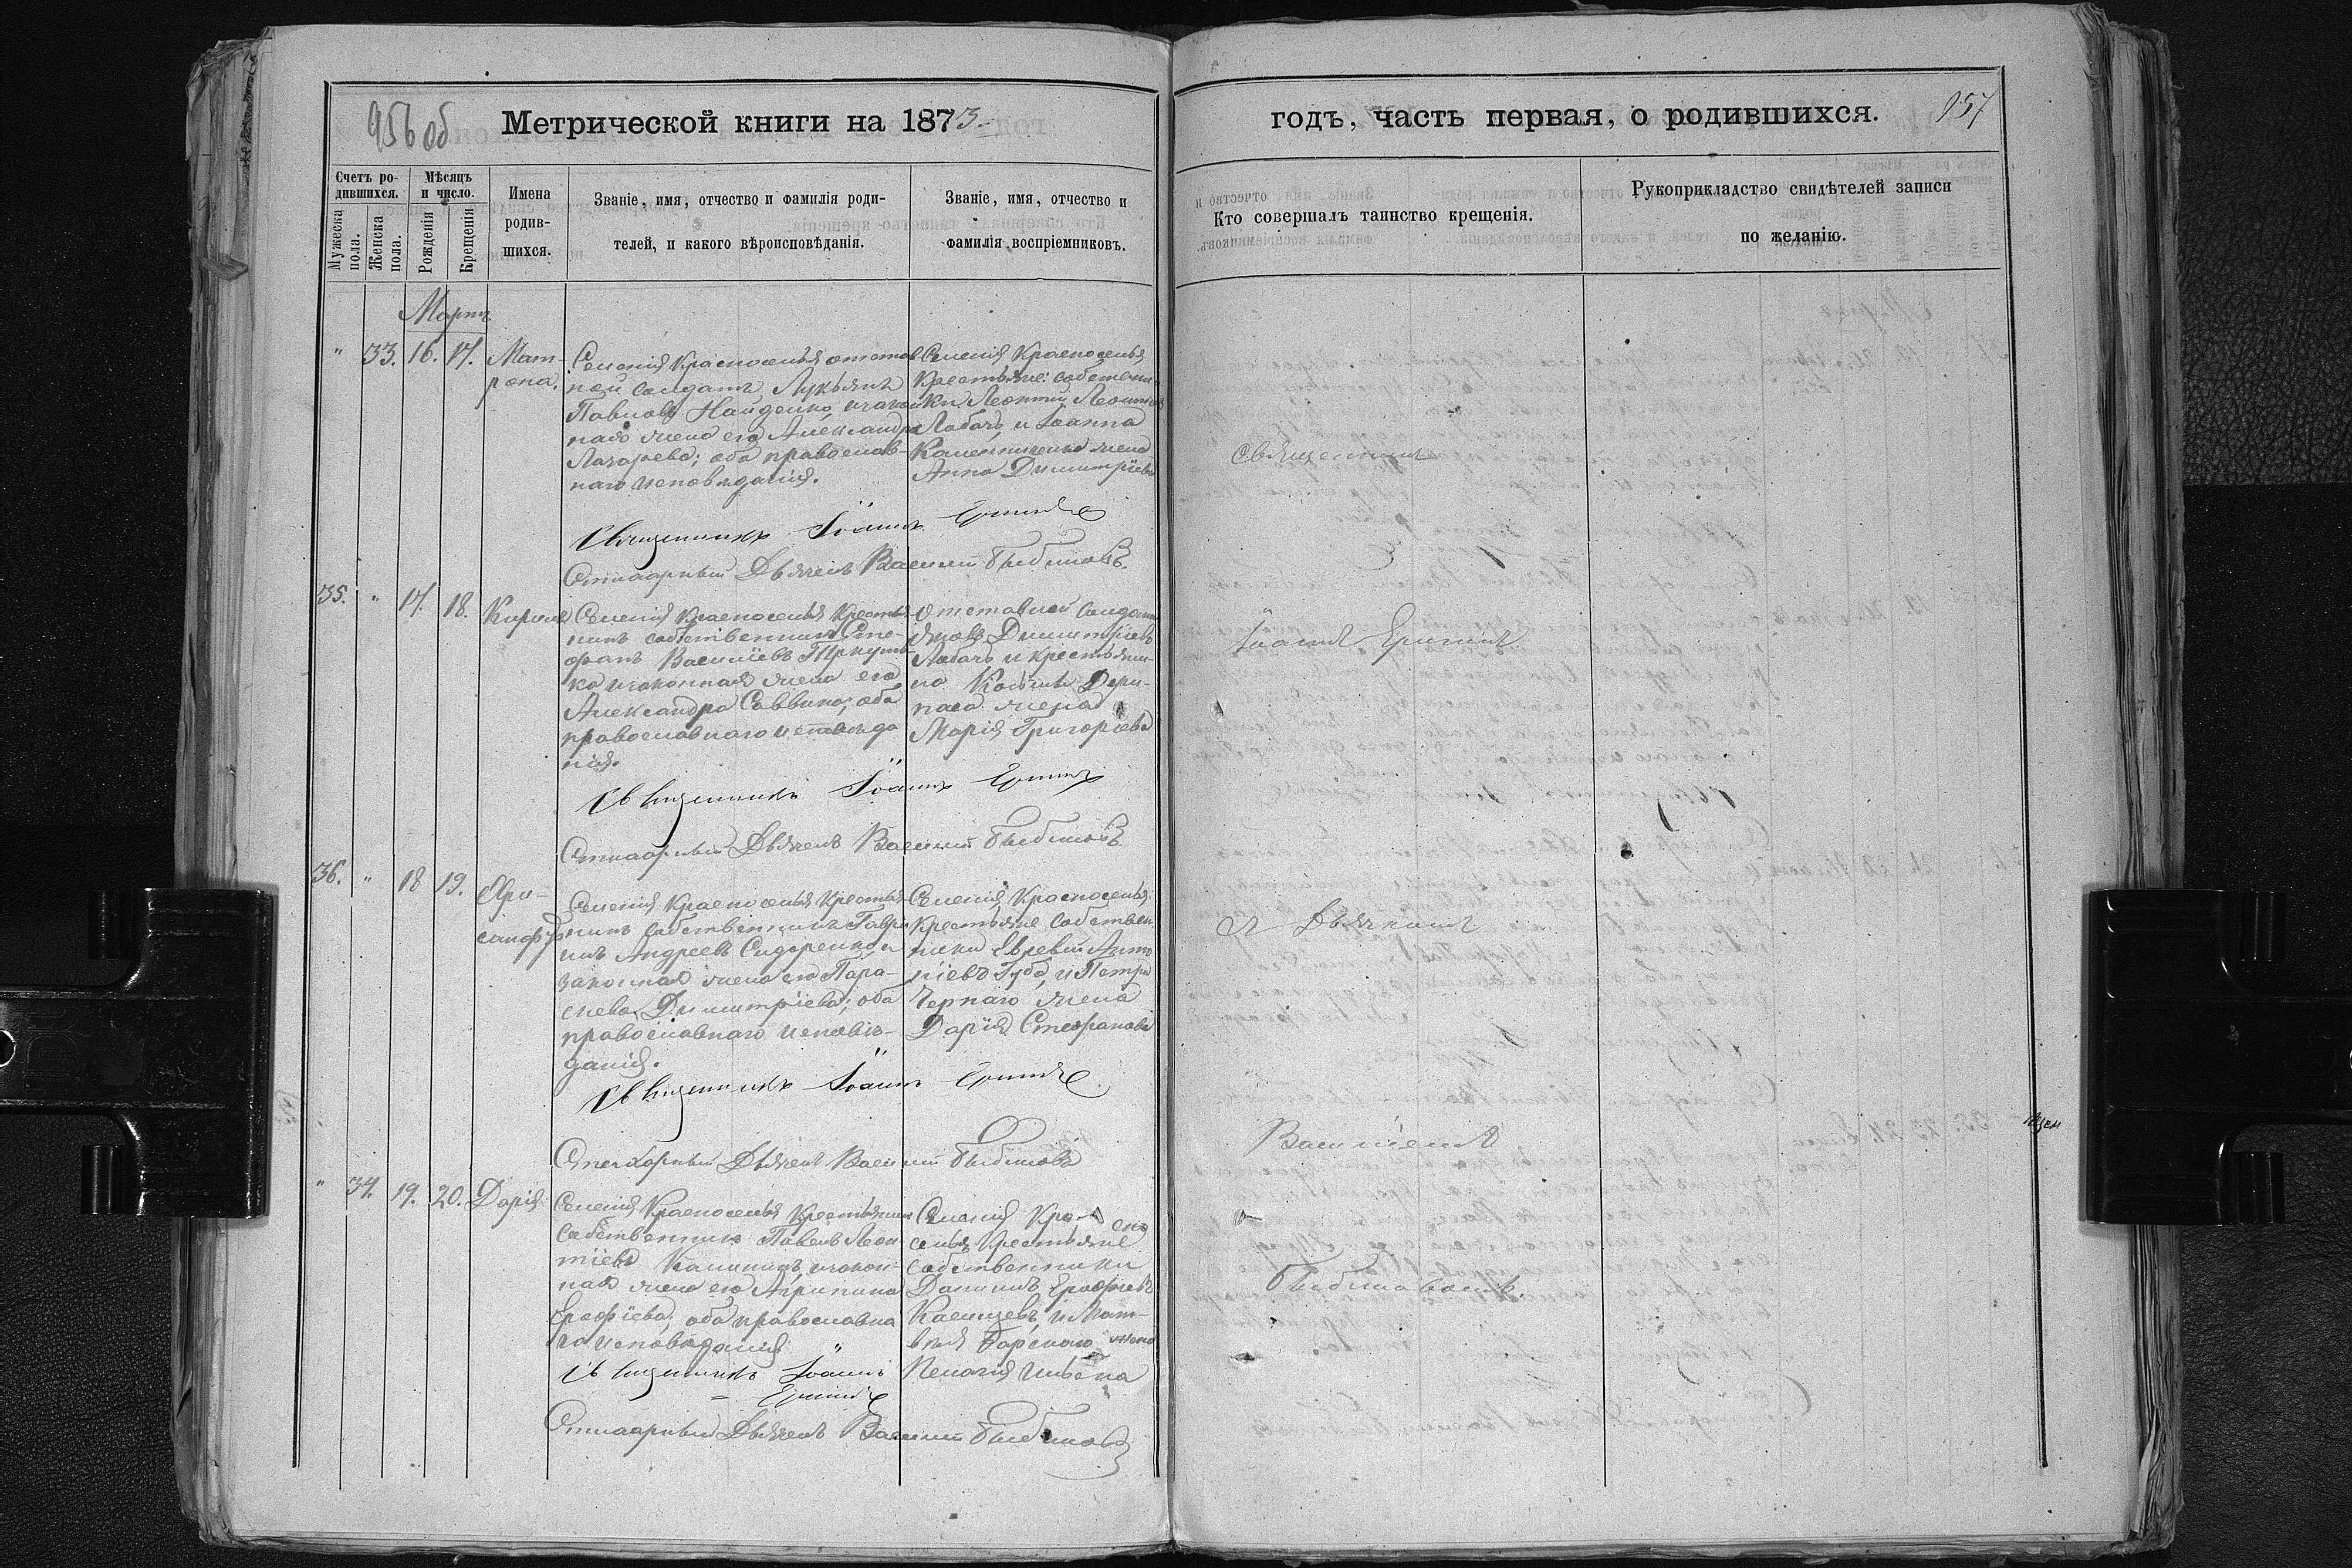 956 об
Метрической книги на 1873
годъ, часть первая, о родившихся.
957
Счетъ ро-
дившихся.
Мужеска
пола.
Женска
пола.
Мѣсяцъ
и число.
Рожденія
Крещенія
Имена
родив-
шихся.
Званіе, имя, отчество и фамилія роди-
телей, и какого вѣроисповѣданія.
Званіе, имя, отчество и
фамилія воспріемниковъ.
Кто совершалъ таинство крещенія.
Рукоприкладство свидѣтелей записи
по желанію.
Мартъ
" 33. 16. 17.
Мат-
рона.
Селенія Красноселья отстав
ной солдатъ Лукьянъ
Павловъ Найденко, изакон
ная жена его Александра
Лазарева; оба православ-
наго исповѣданія.
Селенія Красноселья
Крестьяне: собствен
ки Леонтій Леонтіев
Лобачъ, и Іоанна
жена
Анна Димитріева
Священникъ Іоаннъ
Дьячекъ Василій
35. " 17. 18.
Кирилъ
Селенія Красноселья Крестья
нинъ собственникъ Сте-
фанъ Василіевъ
ко изаконная жена его
Александра Саввина; оба
православнаго исповѣда
нія.
Отставной солдатъ
Яковъ Димитріевъ
Лобачъ, и крестьяни-
на Козьмы
жена
Марія Григоріева
Священникъ Іоаннъ
Дьячекъ Василій
36. " 18 19.
Хри-
санфъ
Селенія Красноселья Крестья
нинъ собственникъ Гаврі
илъ Андреевъ Сидоренко и
законная жена его Пара-
скева Димитріева; оба
православнаго исповѣ-
данія.
Селенія Красноселья
Крестьяне собствен
ники Евсевій Анто
ніевъ Губа, и Петра
Чернаго жена
Дарія Стефанова
Священникъ Іоаннъ
Дьячекъ Василій
" 34. 19. 20.
Дарія
Селенія Красноселья Крестьянинъ
собственникъ Павелъ Леон
тіевъ изакон
ная жена его Агрипина
Ерофіева; оба православна
го исповѣданія
Селенія Крас но
селья Крестьяне
собственники
Даніилъ Ерофіевъ
и Мат-
вея жена
Пелагія
Священникъ Іоаннъ
Дьячекъ Василій
Священникъ
Іоаннъ
съ Дьячкомъ
Василіемъ